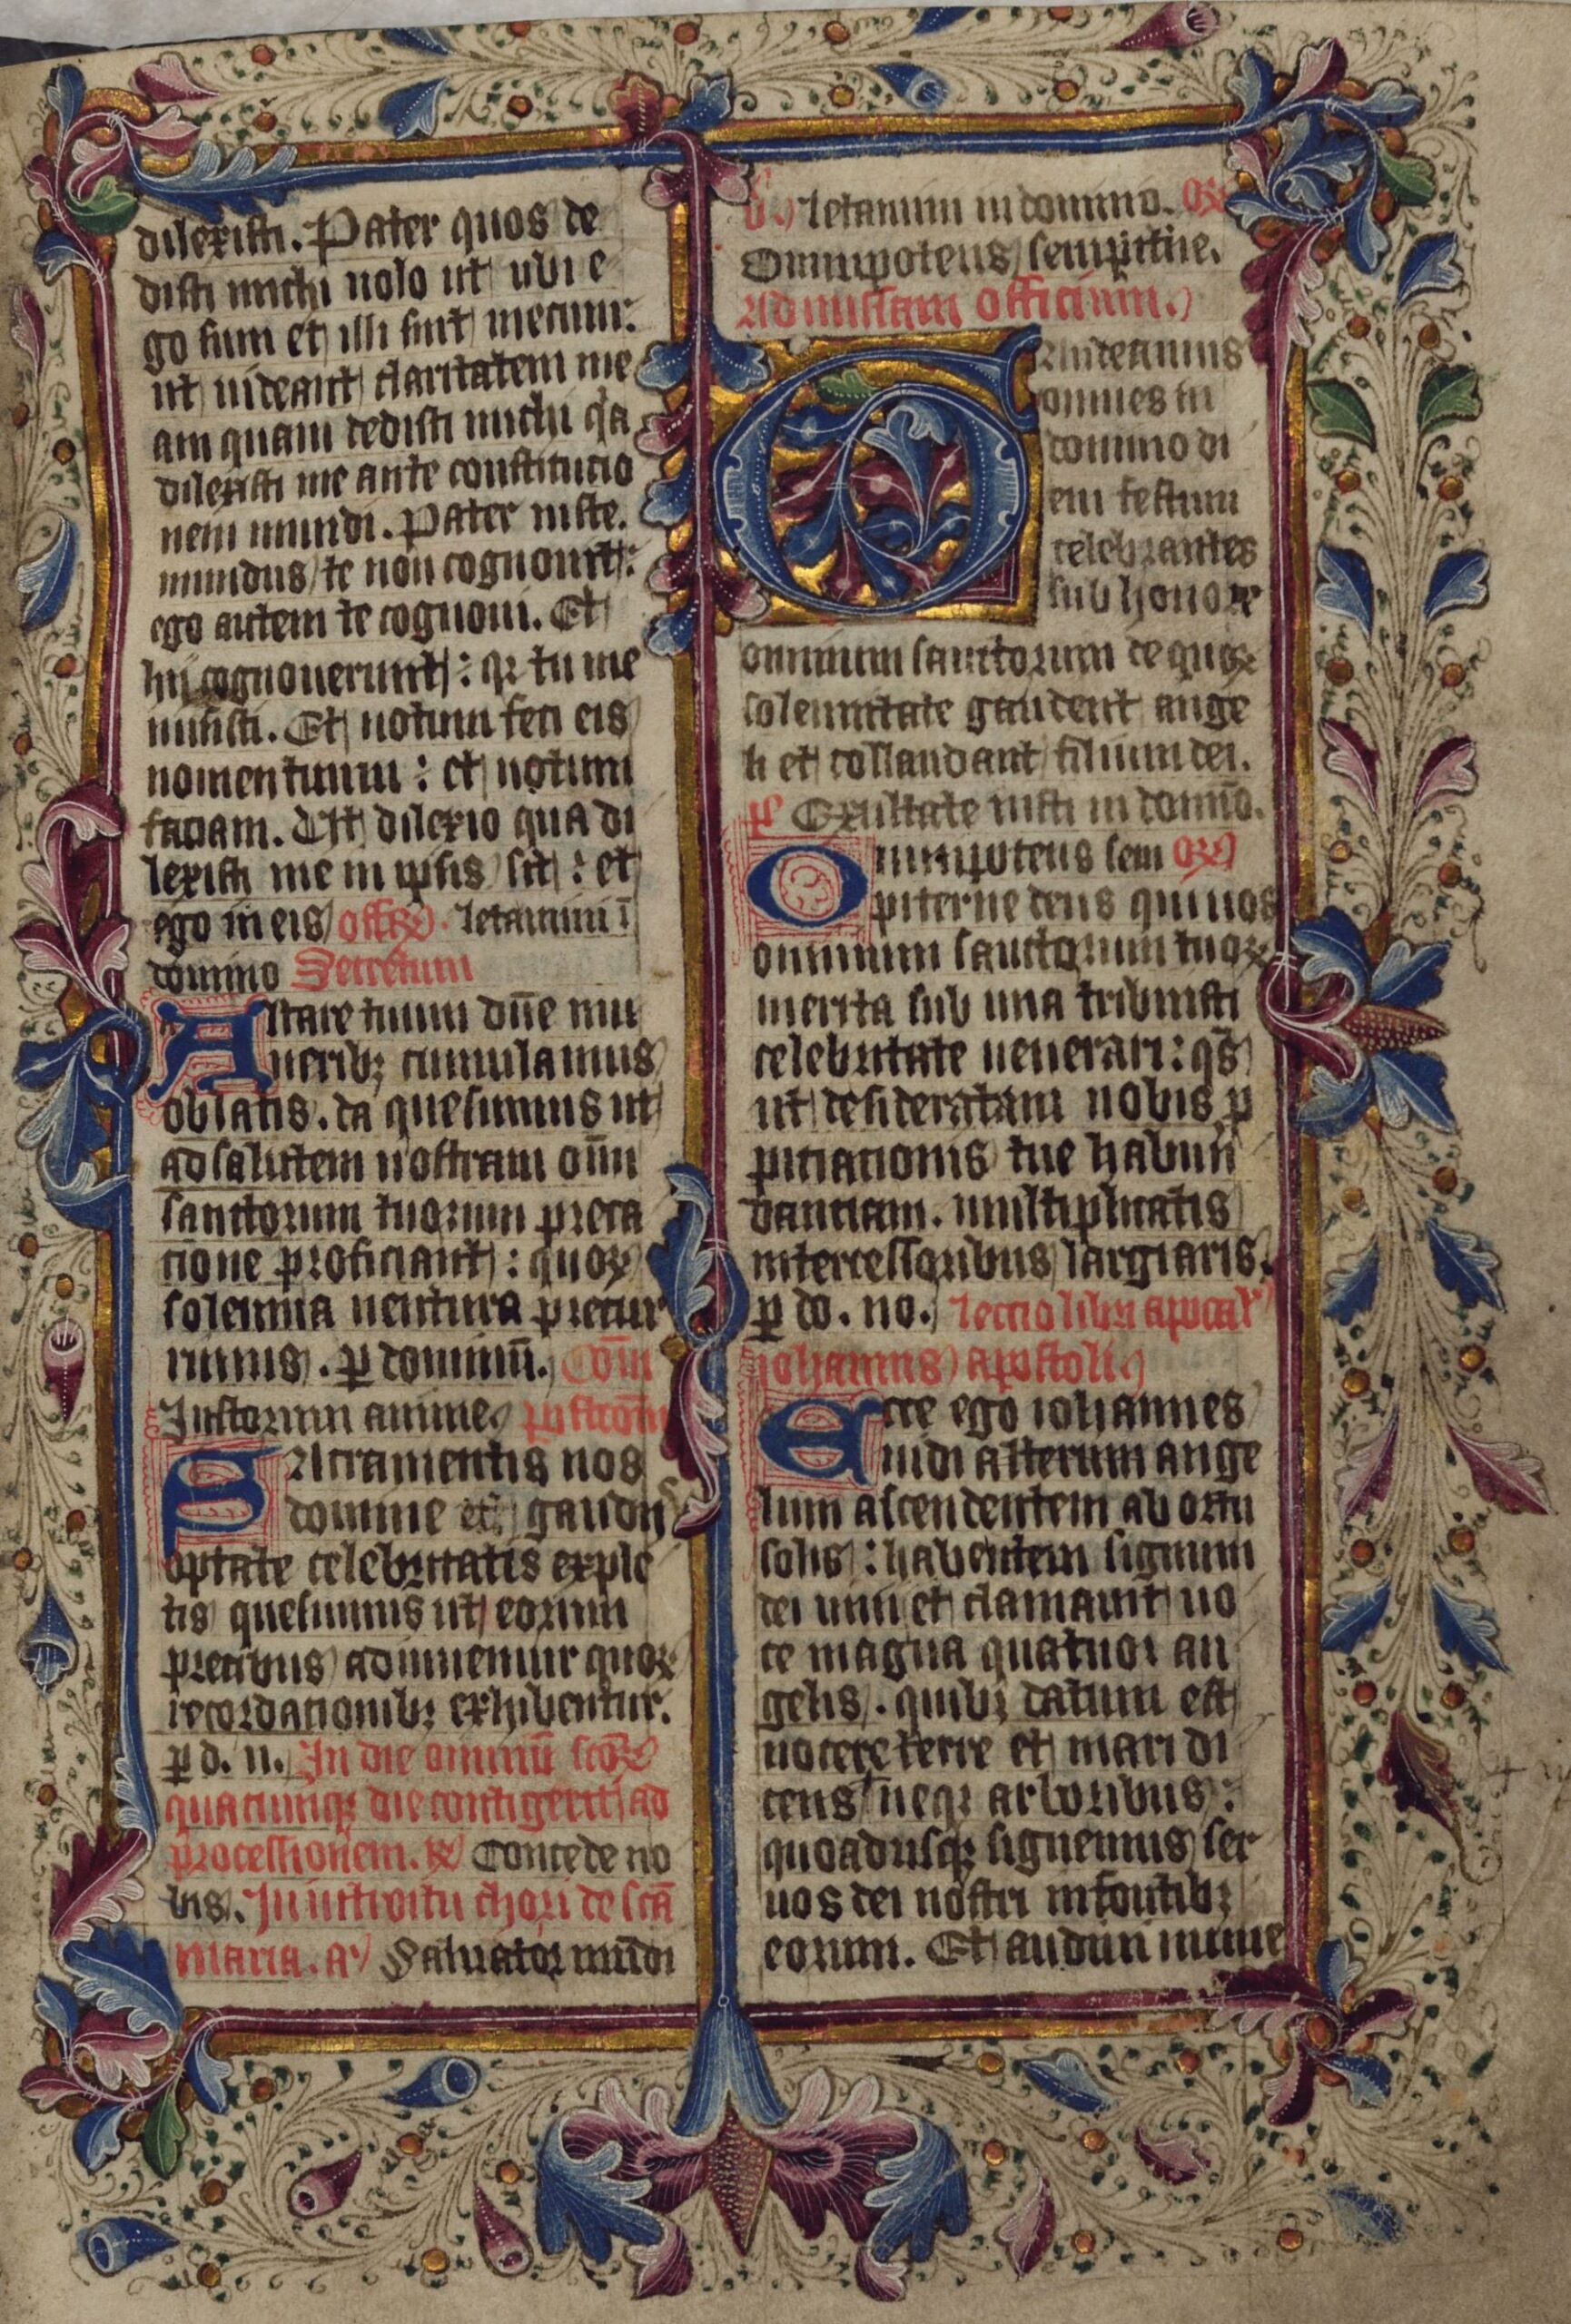 dilexisti. Pater quos de
disti michi uolo ut ubi e
go sum et illi sint mecum:
ut uideant claritatem me
am quam dedisti michi q̃a
dilexisti me ante constitucio
nem mundi. Pater iuste.
mundus te non cognouit:
ego autem te cognoui. Et
hij cognouerunt: qꝛ tu me
misisti. Et notum feci eis
nomen tuum: et notum
faciam. Ut dilexio qua di
lexisti me in ipsis sit: et
ego in eis offꝝ. letamini ī
domino Secretum
Altare tuum dn̄e mu
neribꝫ cumulamus
oblatis. da quesumus ut
ad salutem nostram om̄
sanctorum tuorum preca
cione proficiant: quoꝝ
solennia uentura precur
rimus. ꝑ dominū. Com̄
Iustorum anime. postcom̄
Sacramentis nos
domine et gaudijs
optate celebritatis exple
tis quesumus ut eorum
precibus adiuuemur quoꝝ
recordacionibꝫ exhibentur.
ꝑ d. n. In die omniū scōꝝ
quacumqꝫ die contigerit ad
processionem. ꝶ Concede no
bis. In introitu chori de scā
maria. a᷎ Saluator mūdi
v᷎ letamini in domino. Oꝝ
Omnipotens sempit̄ne.
Ad missam officium.
Gaudeamus
omnes in
domino di
em festum
celebrantes
sub honore
omnium sanctorum de quoꝝ
solennitate gaudent ange
li et collaudant filium dei.
ps Exultate iusti in domīo.
Omnipotens sem Oꝝ
piterne deus qui nos
omnium sanctorum tuoꝝ
merita sub una tribuisti
celebritate uenerari: qs̄
ut desideratam nobis ꝓ
piciacionis tue habun
danciam. multiplicatis
intercessoribus largiaris.
ꝑ do. no. lectio libri apocal᷎
iohannis apostoli.
Ecce ego iohannes
uidi alterum ange
lum ascendentem ab ortu
solis: habentem signum
dei uiui et clamauit uo
ce magna quatuor an
gelis. quibꝫ datum est
nocere terre et mari di
cens neqꝫ arboribus:
quoadusqꝫ signemus ser
uos dei nostri in frontibꝫ
eorum. Et audiui nume